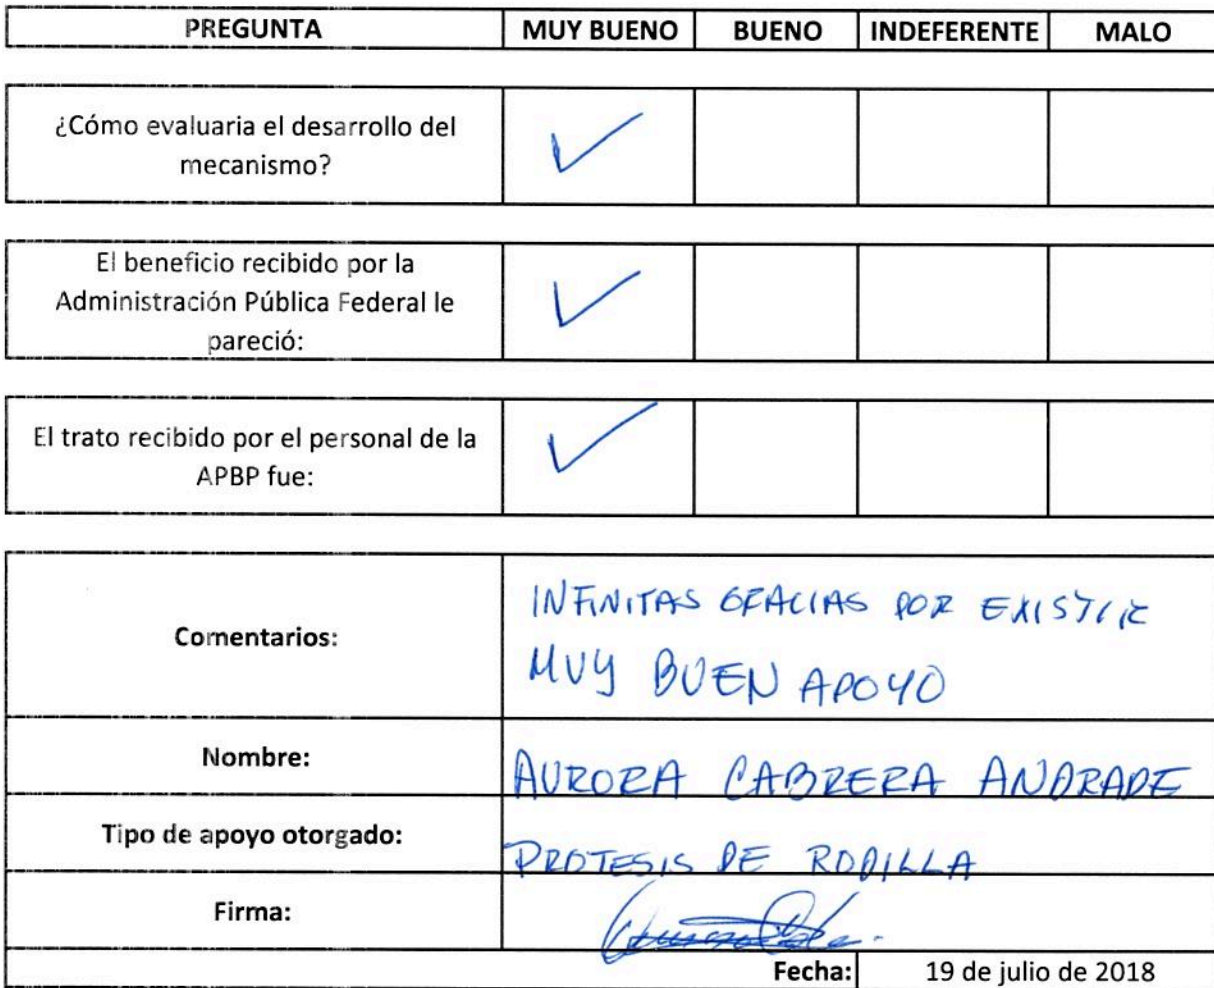 PREGUNTA MUY BUENO BUENO INDEFERENTE MALO
¿Cómo evaluaria el desarrollo del
mecanismo?
El beneficio recibido por la
Administración Pública Federal le
pareció:
El trato recibido por el personal de la
APBP fue:
Comentarios:
INFINITAS GRACIAS POR EXISTIR
MUY BUEN APOYO
Nombre:
AURORA CABRERA ANDRADE
Tipo de apoyo otorgado:
PROTESIS DE RODILLA
Firma:
Fecha: 19 de julio de 2018